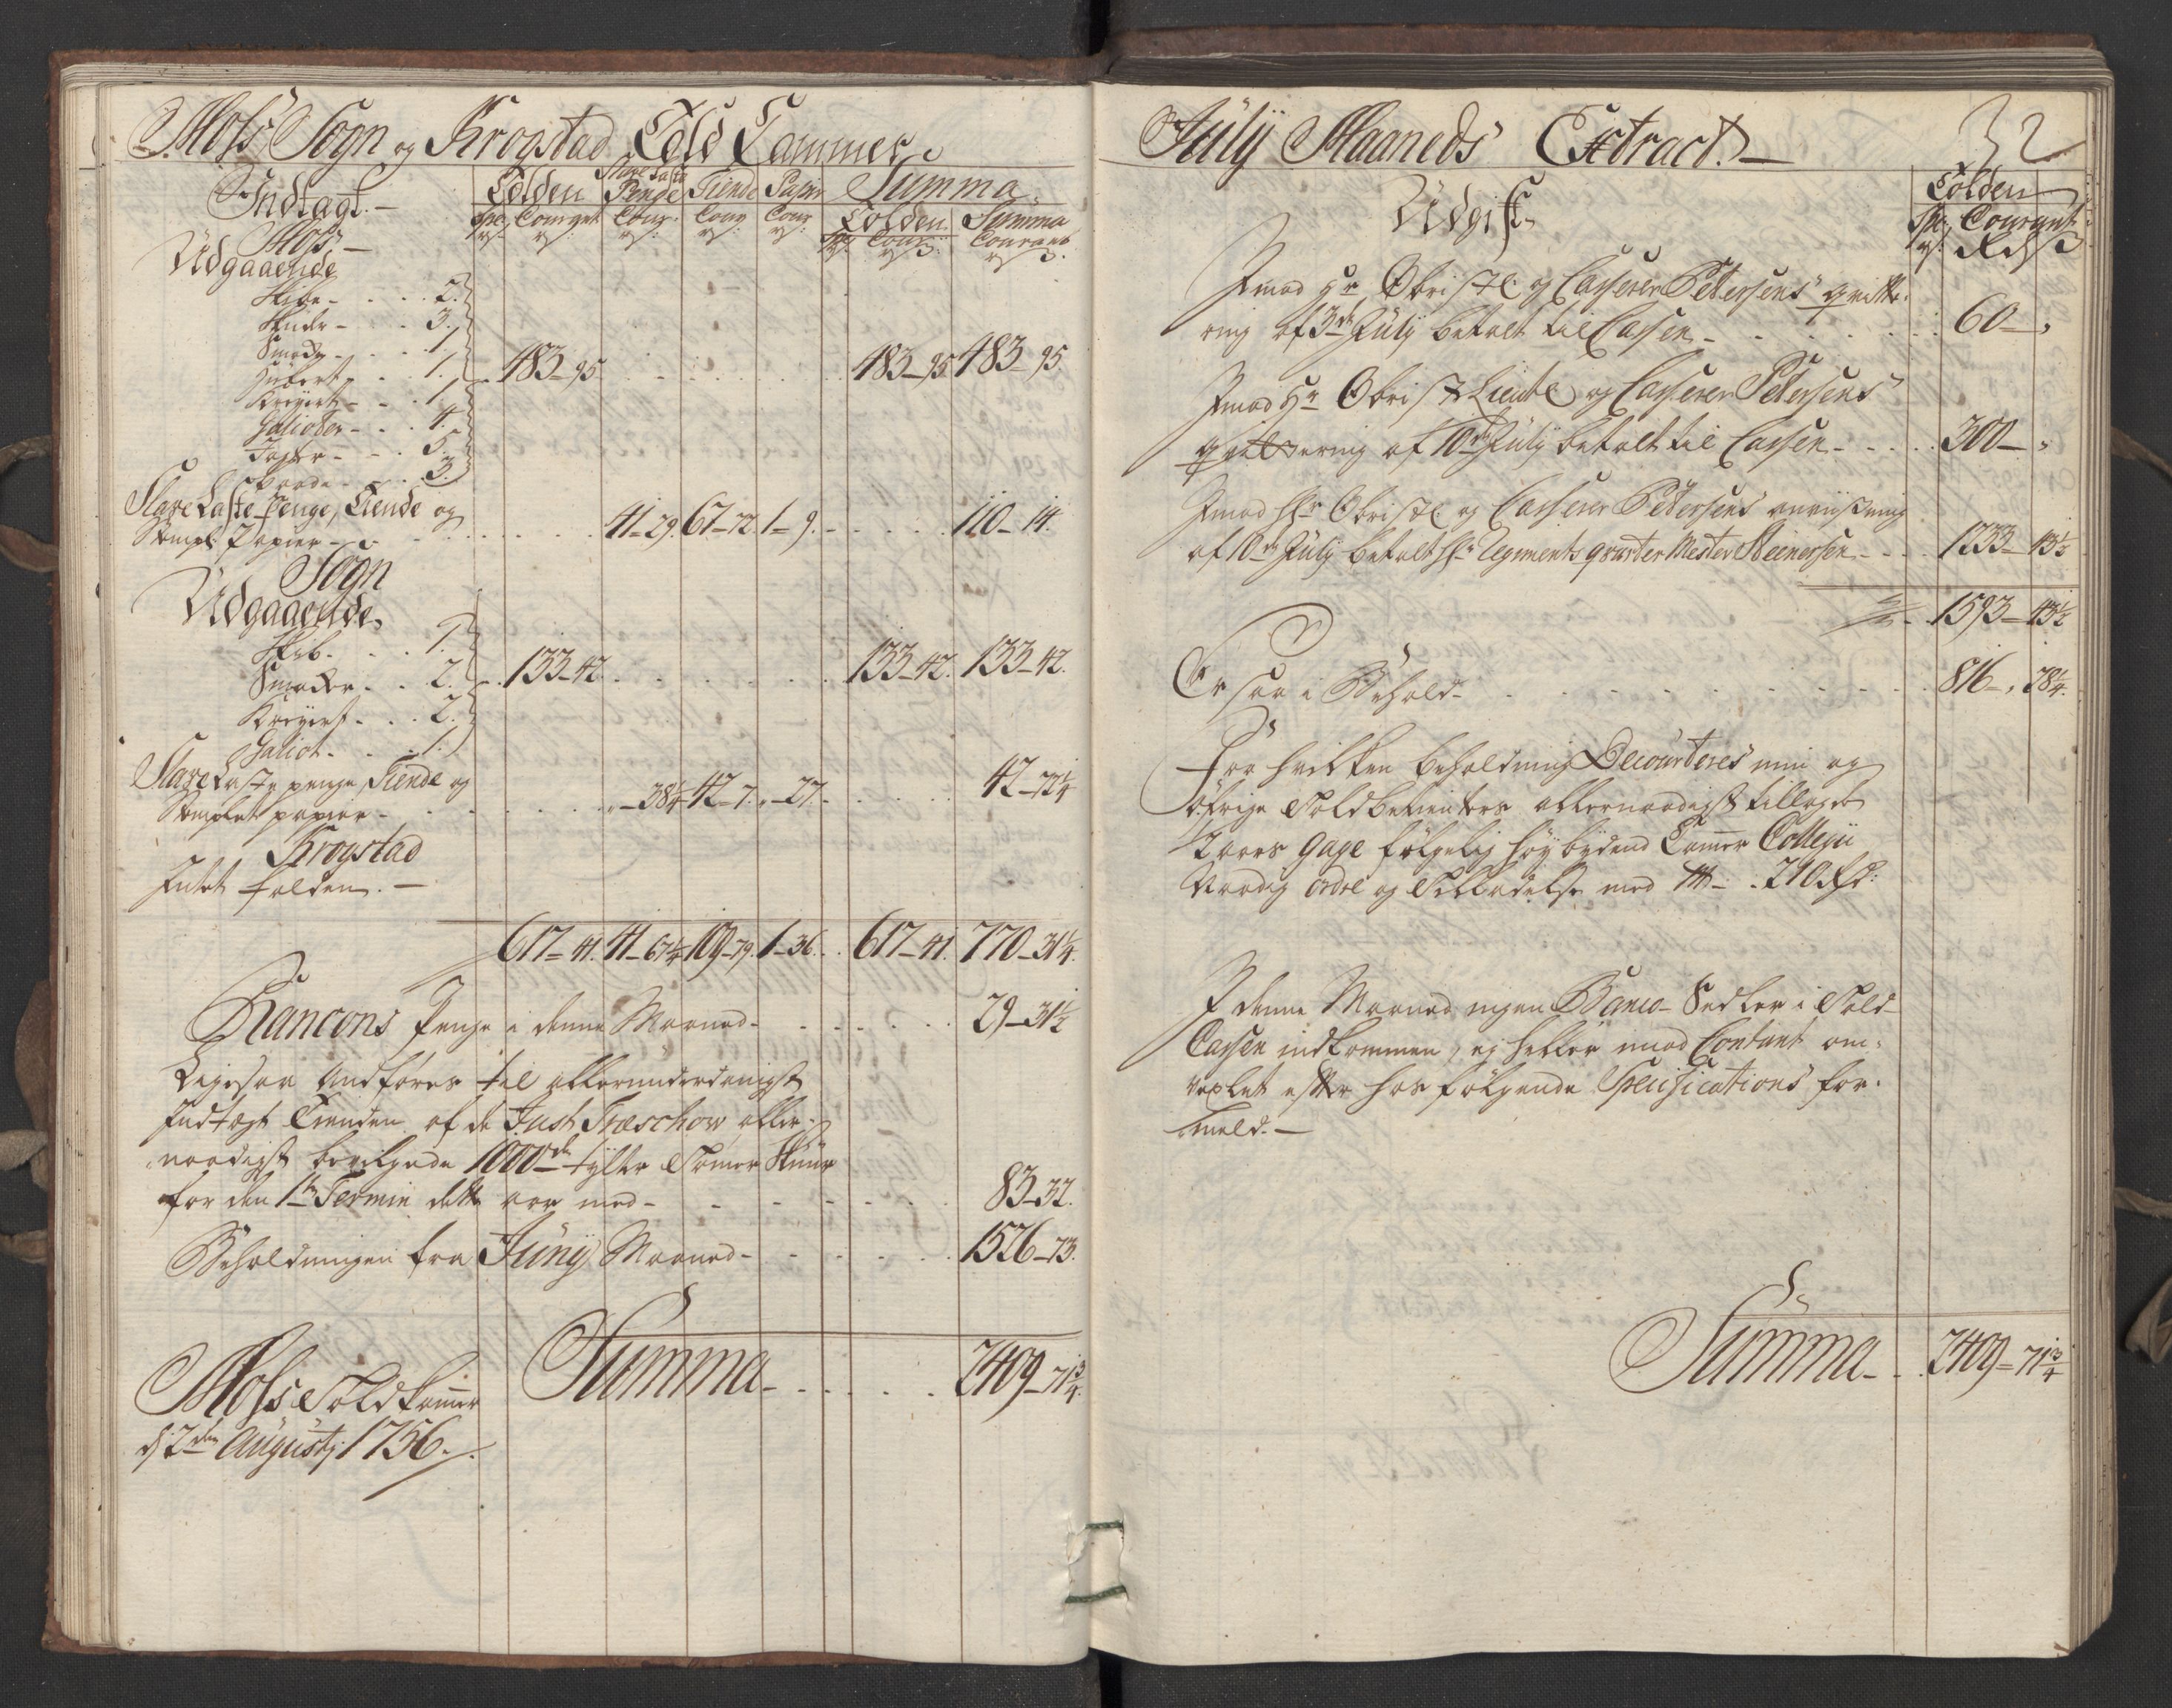 Moss Sogn og Krogstad Told Cammer
Indtægt.
Tolden Slave Laste Penge Tiende Papiir Summa
Spe Courant Cour: Cour Cour Tolden Summa
Spe Cour: Courant
Moss.
Udgaaende
Skibe - 2.
Skuder - 3.
Smacke - 1.
Hukert - 1.
Kreyert - 1.
Galioder - 4.
Jagter - 5.
Baade - 3.
483-95 483-95 483-95
Slave Laste Penge, Tiende og
Stempl: Papiir - 41-29. 67-72. 1-9. 110-14.
Sogn
Udgaaende
Skib - 1.
Smacker - 2.
Kreyert - 2.
Galiot - 1.
133-42 133-42. 133-42.
Slave Laste penge Tiende og
Stemplet papiir - „-38¼ 42-7. „-27. 42-72¼
Krogstad
Intet falden. -
617-41. 41-67¼ 109-79. 1-36. 617-41. 770-31¼.
Rancons Penge i denne Maaned - 29-31½
Ligesaa Andføres til allerunderdanigst
Indtægt Tienden af de Just Træschow aller-
naadigst bevilgede 1000de tylter Tømmer Skuur
for den 1te Termin dette aar med - 83-32.
Beholdningen fra Junÿ Maaned - 1526-73.
Summa - 2409-71¾.
Moss Toldkammer
d: 2den Augustj: 1756.
Julÿ Maaneds Extract. -
32
Udgift
Tolden
Spe Courant
Rd ß
Imod Hr Obristl: og Casserer Petersens qvitte-
ring af 3de Julÿ betalt til Cassen - 60-„
Imod Hr Obrist Lieutl og Casserer Petersens
qvittering af 10de Julÿ betalt til Cassen - 300-„
Imod Hr Obristl: og Casserer Petersens anviisning
af 10de Julÿ betalt Hr Regiments qvarter Mester Steenersen - 1233-43½
1593-43½
Er saa i Behold - 816-„28¼.
For hvilken beholdning Decourteres min og
øfrige Toldbetienters allernaadigst tillagde
½ aars Gage følgelig høybydend Cammer Collegii
Naadig ordre og Tilladelse med - 210 Rd:
I denne Maaned ingen Banco-Sedler i Told-
Cassen indkommen, ej heller imod Contant om-
vexlet efter hos følgende Specifications for-
meld. -
Summa - 2409-71¾